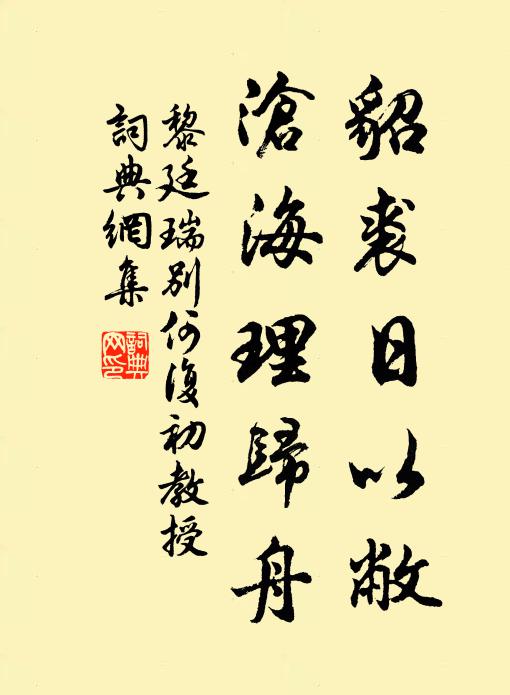 貂裘日以敝
滄海理歸舟
黎廷瑞別何復初教授
詞典網集
詞典網印